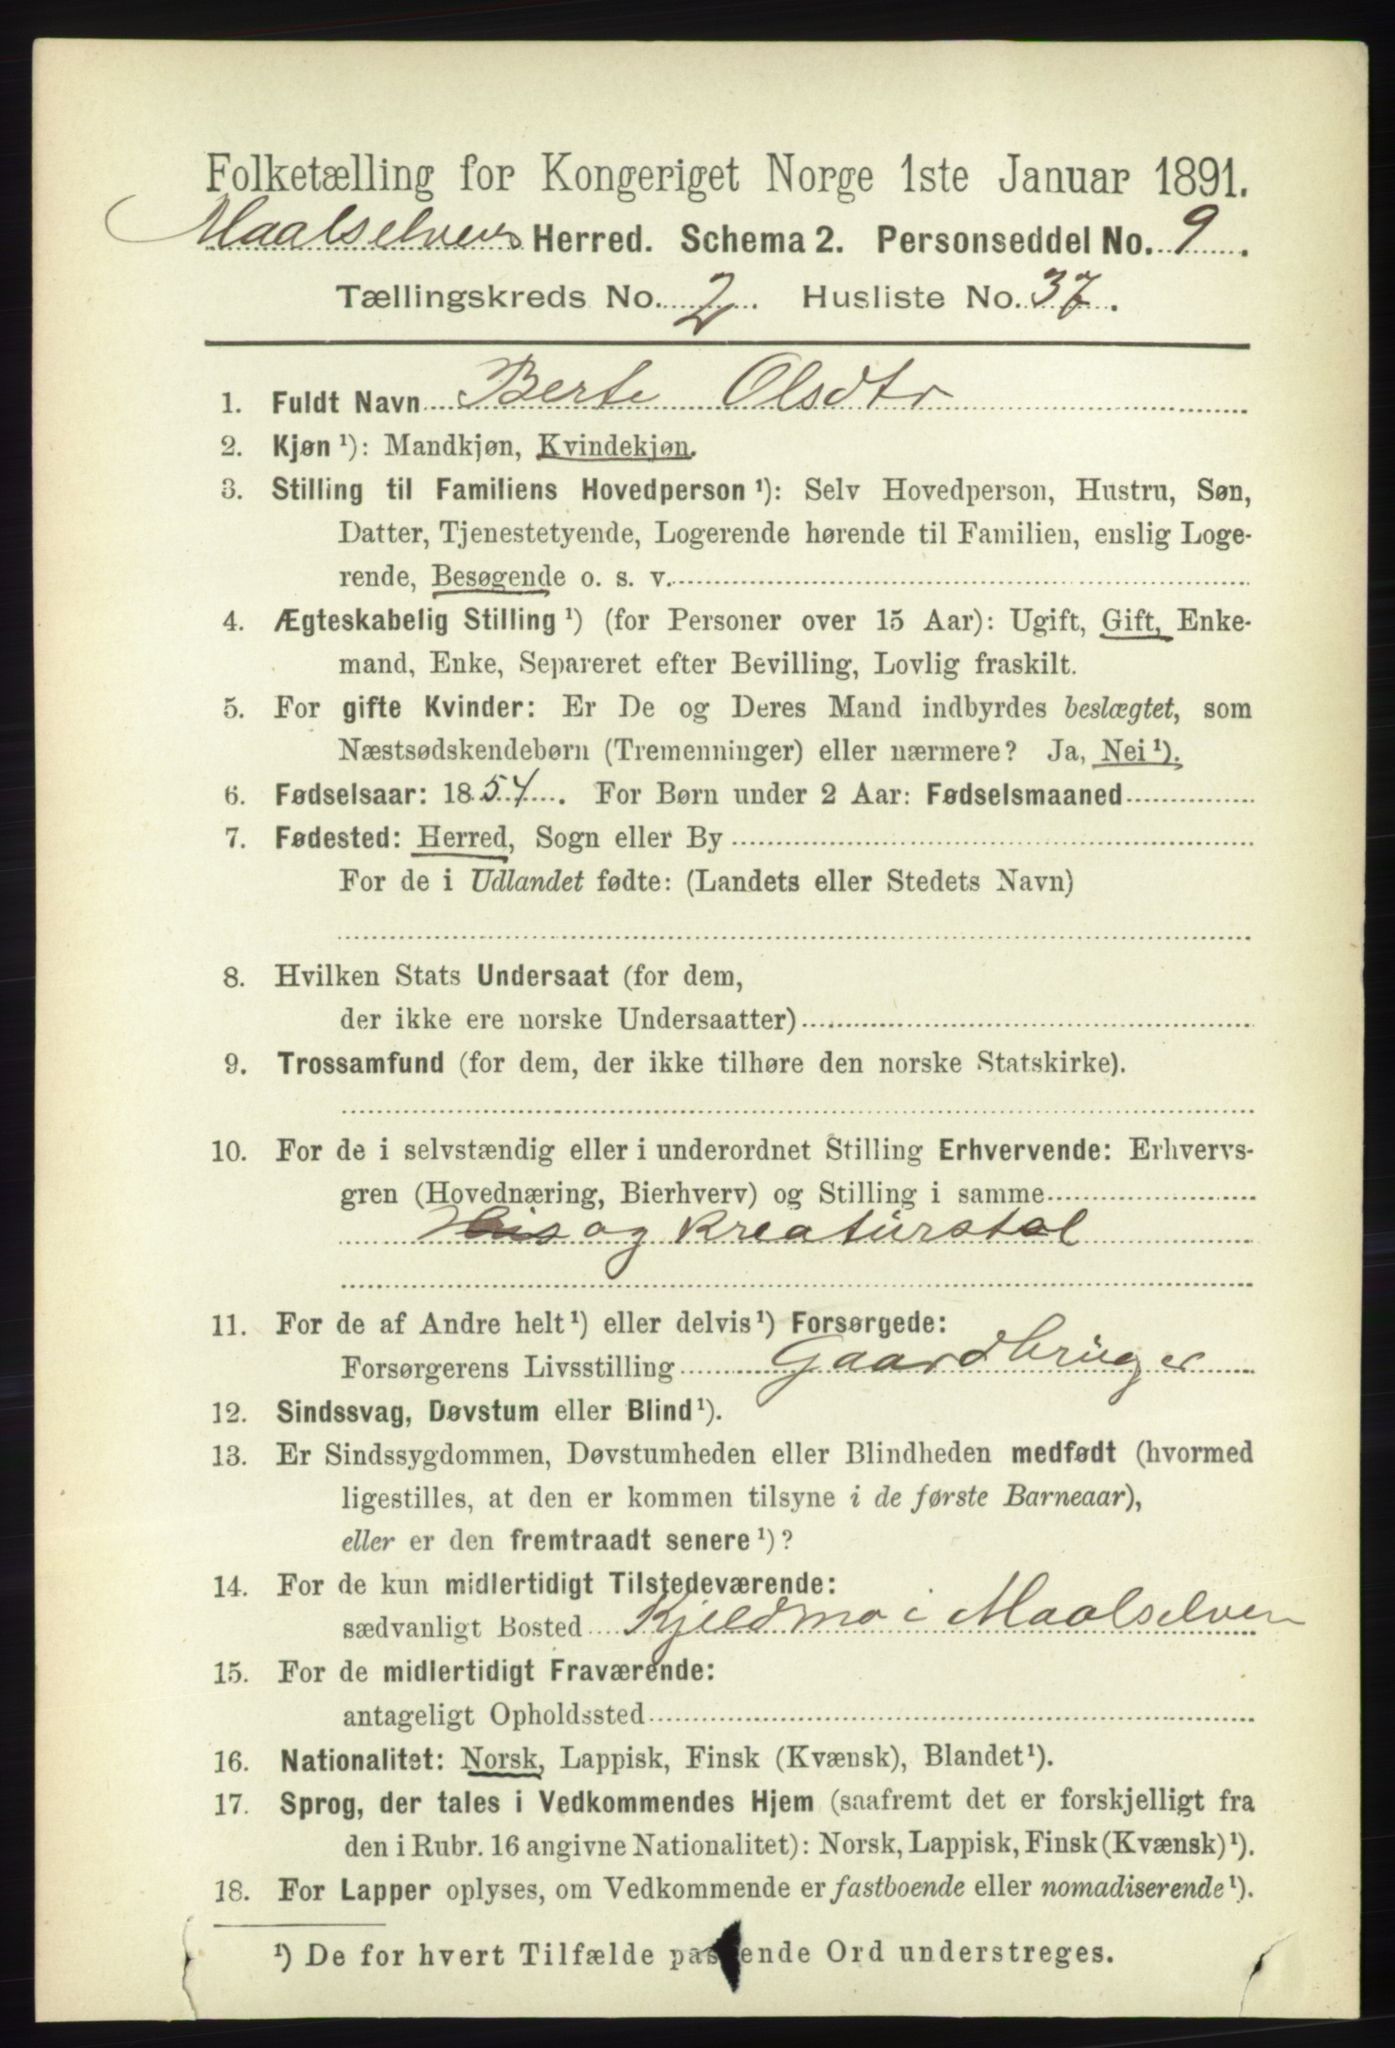 Folketælling for Kongeriget Norge 1ste Januar 1891.
Maalselvens Herred. Schema 2. Personseddel No. 9.
Tællingskreds No. 2. Husliste No. 37.
1. Fuldt Navn Berte Olsdtr
2. Kjøn ¹): Mandkjøn, Kvindekjøn.
3. Stilling til Familiens Hovedperson ¹): Selv Hovedperson, Hustru, Søn,
Datter, Tjenestetyende, Logerende hørende til Familien, enslig Loge-
rende, Besøgende o. s. v.
4. Ægteskabelig Stilling ¹) (for Personer over 15 Aar): Ugift, Gift, Enke-
mand, Enke, Separeret efter Bevilling, Lovlig fraskilt.
5. For gifte Kvinder: Er De og Deres Mand indbyrdes beslægtet, som
Næstsødskendebørn (Tremenninger) eller nærmere? Ja, Nei ¹).
6. Fødselsaar: 1854. For Børn under 2 Aar: Fødselsmaaned
7. Fødested: Herred, Sogn eller By
For de i Udlandet fødte: (Landets eller Stedets Navn)
8. Hvilken Stats Undersaat (for dem,
der ikke ere norske Undersaatter)
9. Trossamfund (for dem, der ikke tilhøre den norske Statskirke).
10. For de i selvstændig eller i underordnet Stilling Erhvervende: Erhvervs-
gren (Hovednæring, Bierhverv) og Stilling i samme
og Kreaturstel
11. For de af Andre helt ¹) eller delvis ¹) Forsørgede:
Forsørgerens Livsstilling Gaardbruger
12. Sindssvag, Døvstum eller Blind ¹).
13. Er Sindssygdommen, Døvstumheden eller Blindheden medfødt (hvormed
ligestilles, at den er kommen tilsyne i de første Barneaar),
eller er den fremtraadt senere ¹)?
14. For de kun midlertidigt Tilstedeværende:
sædvanligt Bosted Kjeldmo i Maalselven
15. For de midlertidigt Fraværende:
antageligt Opholdssted
16. Nationalitet: Norsk, Lappisk, Finsk (Kvænsk), Blandet ¹).
17. Sprog, der tales i Vedkommendes Hjem (saafremt det er forskjelligt fra
den i Rubr. 16 angivne Nationalitet): Norsk, Lappisk, Finsk (Kvænsk) ¹).
18. For Lapper oplyses, om Vedkommende er fastboende eller nomadiserende ¹).
¹) De for hvert Tilfælde passende Ord understreges.